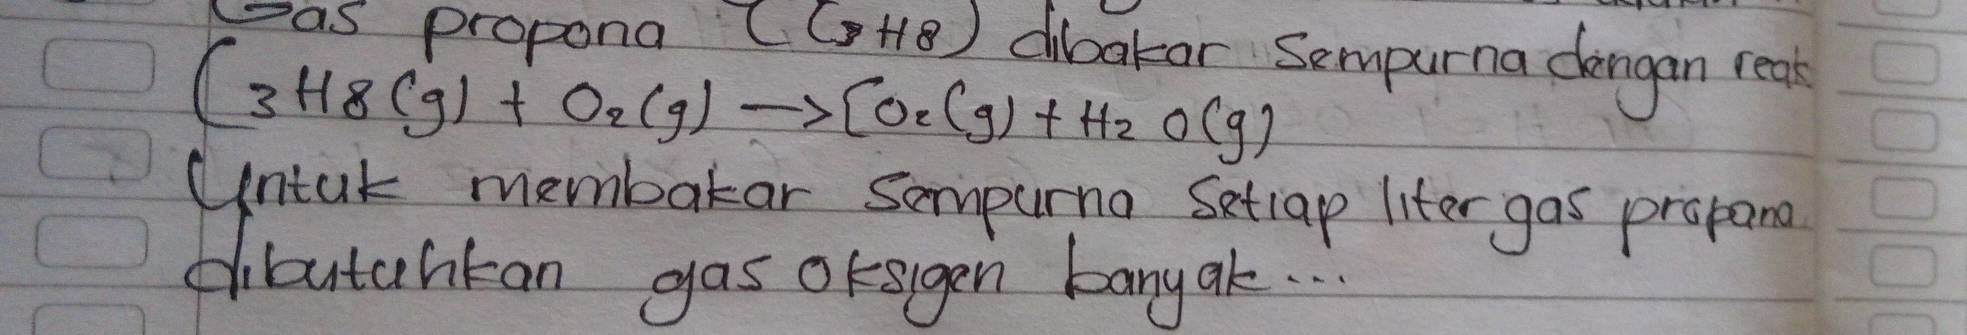 Gas propana (C3H8) dibakar sempurna dengan reak
C3H8(g) + O2(g) → CO2(g) + H2O(g)
Untuk membakar sempurna setiap liter gas propana
dibutuhkan gas oksigen banyak...